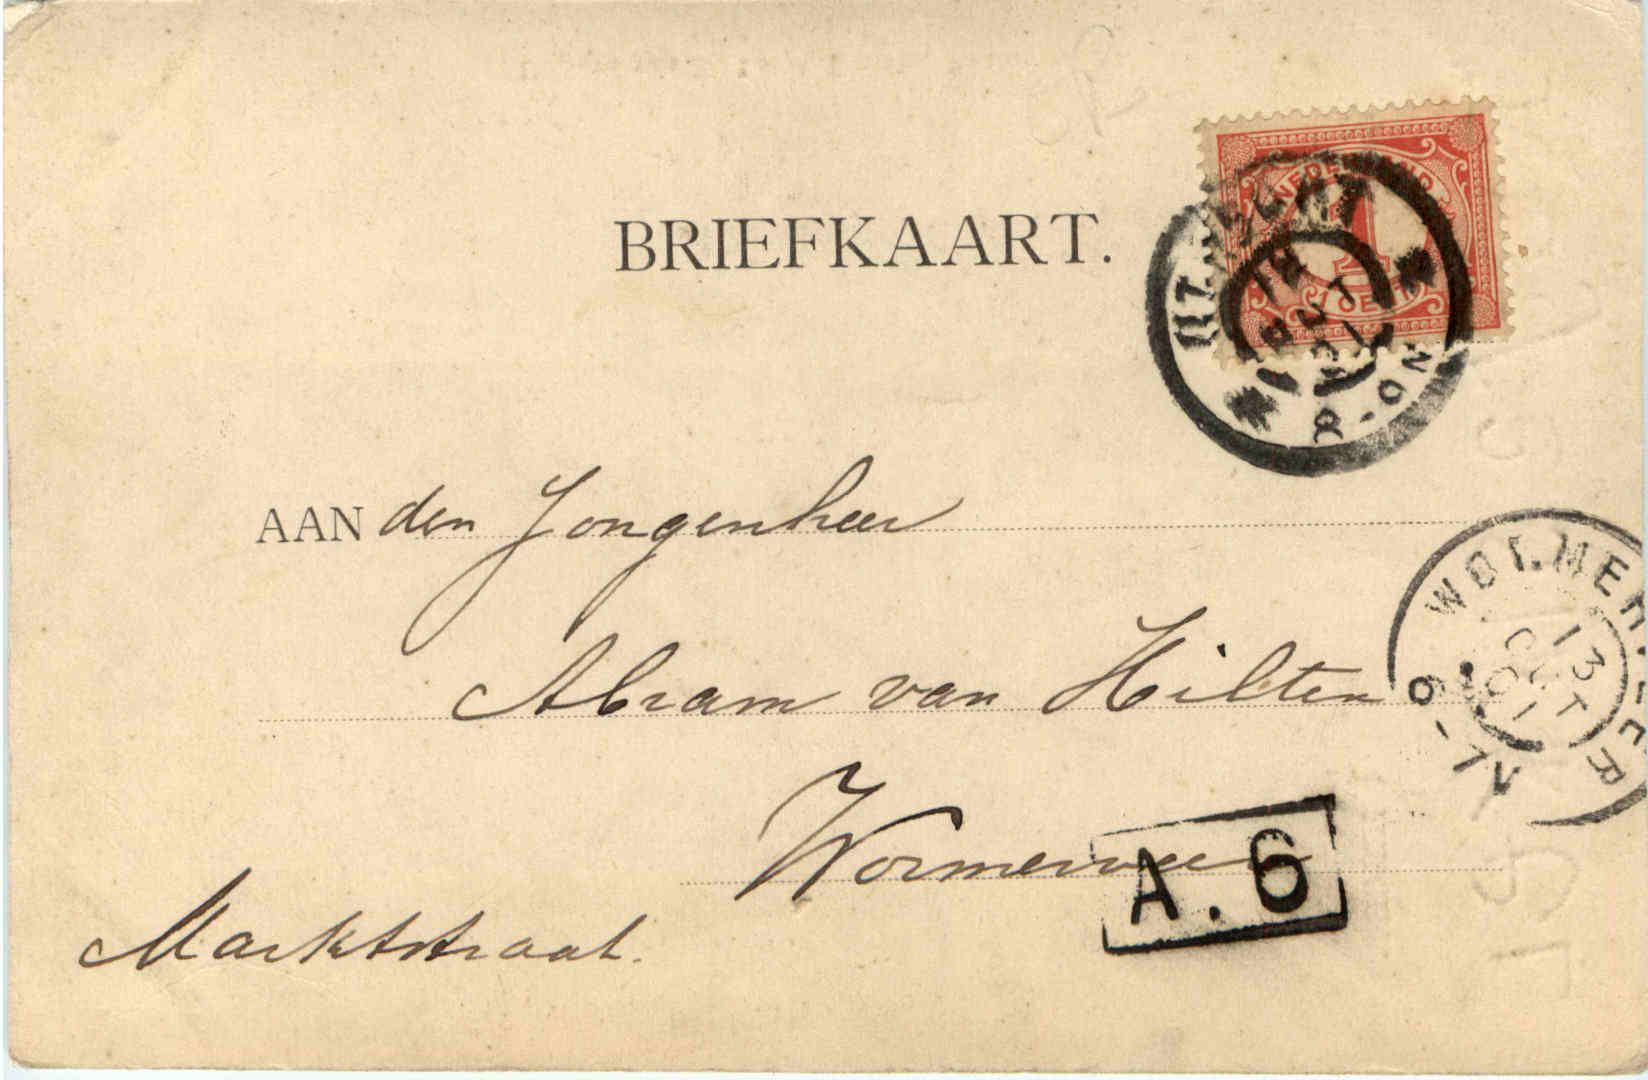 BRIEFKAART.
NEDERLAND
1 CENT
UTRECHT
8 - NO
AAN den Jongenheer
Abram van Hilten
Wormerveer
Marktstraat.
WORMERVEER
13
OCT
01
6-7V
A.6